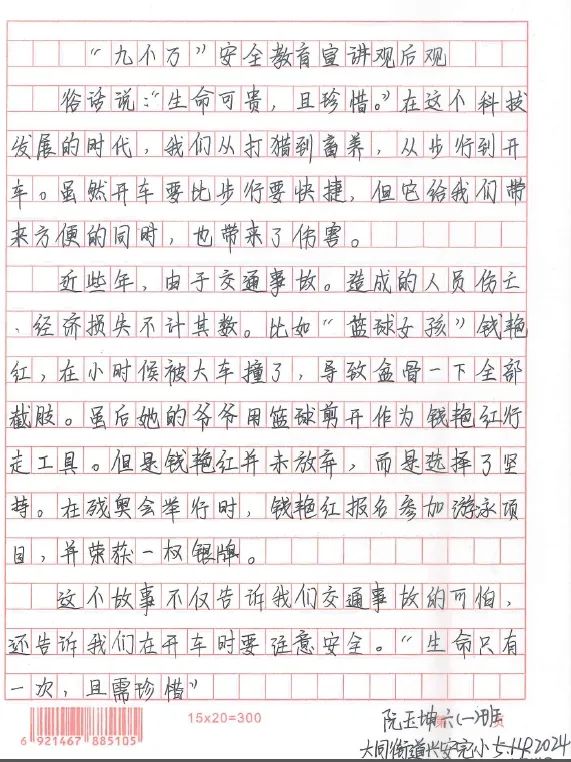 “九个万”安全教育宣讲观后观
俗话说:“生命可贵，且珍惜。”在这个科技
发展的时代，我们从打猎到畜养，从步行到开
车。虽然开车要比步行要快捷，但它给我们带
来方便的同时，也带来了伤害。
近些年，由于交通事故。造成的人员伤亡
、经济损失不计其数。比如“蓝球女孩”钱艳
红，在小时候被大车撞了，导致盆骨一下全部
截肢。虽后她的爷爷用篮球剪开作为钱艳红行
走工具。但是钱艳红并未放弃，而是选择了坚
持。在残奥会举行时，钱艳红报名参加游泳项
目，并荣获一权银牌。
这个故事不仅告诉我们交通事故的可怕，
还告诉我们在开车时要注意安全。“生命只有
一次，且需珍惜”
15x20=300
6 921467 885105
阮玉坤六(一)班
大同街道兴安完小5.14.2024